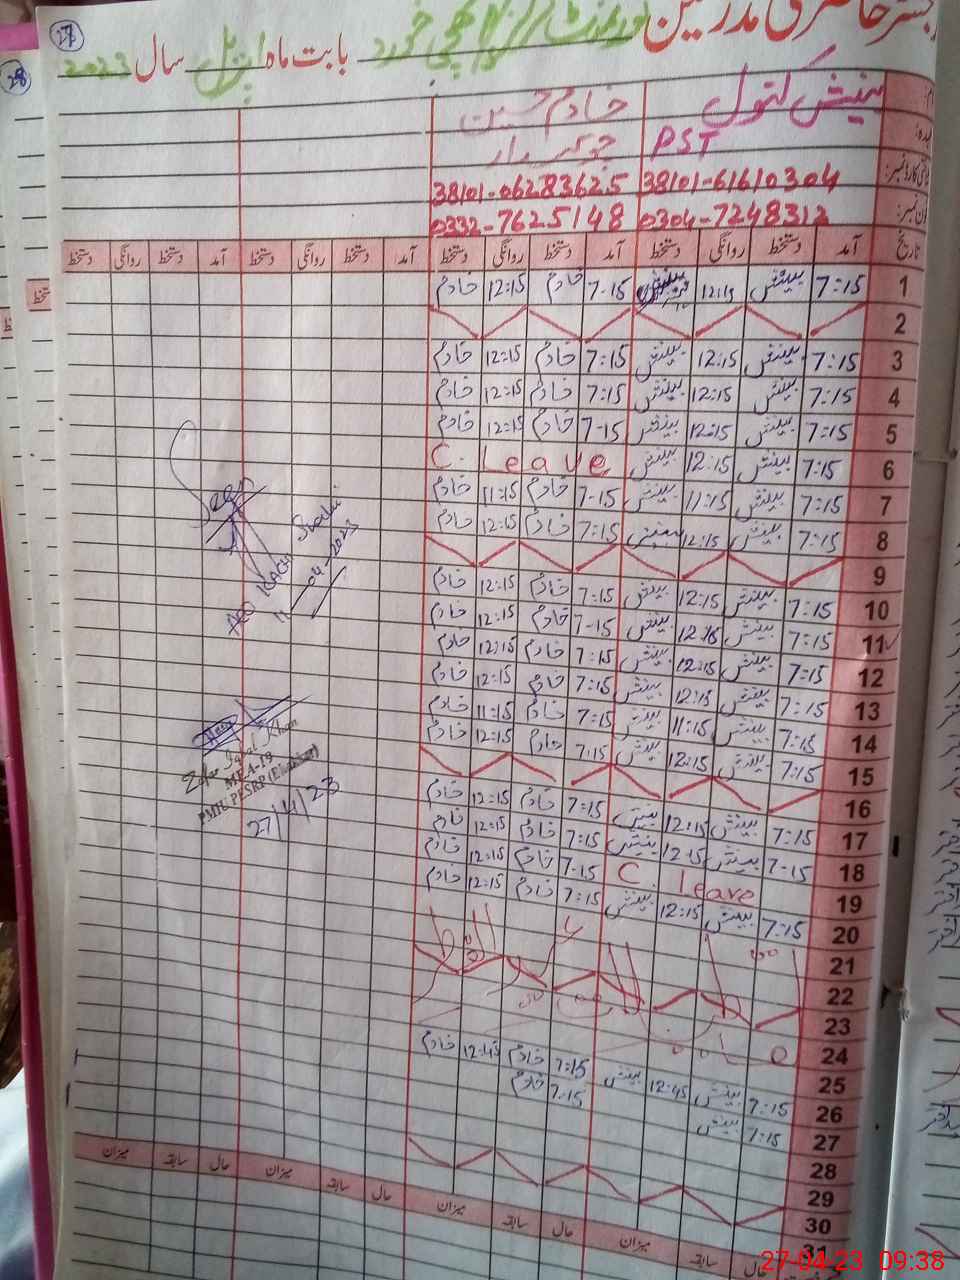 27
رجسٹر حاضری مدرسین گورنمنٹ گرلز پرائمری
بابت ماہ اپریل سال 2023
28
نام: بینش کنول خادم حسین
عہدہ: PST چوکیدار
شناختی کارڈ نمبر: 38101-6161030​4 38101-0628362​5
فون نمبر: 0304-7248312 0332-7625148
تاریخ آمد دستخط روانگی دستخط آمد دستخط روانگی دستخط آمد دستخط روانگی دستخط آمد دستخط روانگی دستخط
1 7:15 بینش 12:15 بینش 7-15 خادم 12:15 خادم
2
3 7:15 بینش 12:15 بینش 7:15 خادم 12:15 خادم
4 7:15 بینش 12:15 بینش 7:15 خادم 12:15 خادم
5 7:15 بینش 12:15 بینش 7-15 خادم 12:15 خادم
6 7:15 بینش 12:15 بینش C. Leave
7 7:15 بینش 11:15 بینش 7-15 خادم 11:15 خادم
8 7:15 بینش 12:15 بینش 7:15 خادم 12:15 خادم
9
10 7:15 بینش 12:15 بینش 7:15 خادم 12:15 خادم
11 7:15 بینش 12:15 بینش 7-15 خادم 12:15 خادم
12 7:15 بینش 12:15 بینش 7:15 خادم 12:15 خادم
13 7:15 بینش 12:15 بینش 7:15 خادم 12:15 خادم
14 7:15 بینش 11:15 بینش 7:15 خادم 11:15 خادم
15 7:15 بینش 12:15 بینش 7:15 خادم 12:15 خادم
16
17 7:15 بینش 12:15 بینش 7:15 خادم 12:15 خادم
18 7-15 بینش 12:15 بینش 7:15 خادم 12:15 خادم
19 C. Leave 7-15 خادم 12:15 خادم
20 7:15 بینش 12:15 بینش 7:15 خادم 12:15 خادم
21
22
23
24
25
26 7:15 بینش 12:45 بینش 7:15 خادم 12:45 خادم
27 7:15 بینش 7-15 خادم
28
29
30
31
حال سابقہ میزان حال سابقہ میزان حال سابقہ میزان حال سابقہ میزان
Seen
AEO
11-04-2023
Zafar Iqbal Khan
MEA-19
PMIU PESRP (Bhakkar)
27/4/23
27-04-23 09:38